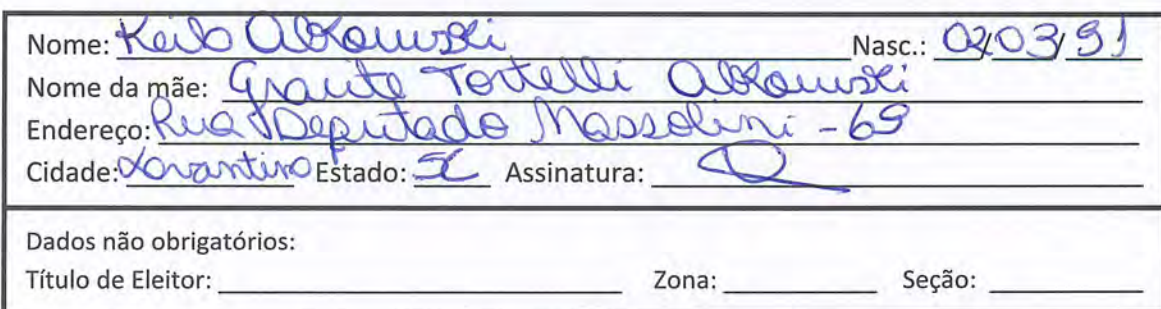 Nome: Keila Abkowski Nasc.: 02/03/91
Nome da mãe: Tortelli Abkowski
Endereço: Rua Deputado Massolini - 69
Cidade: Estado: SC Assinatura:
Dados não obrigatórios:
Título de Eleitor: Zona: Seção: